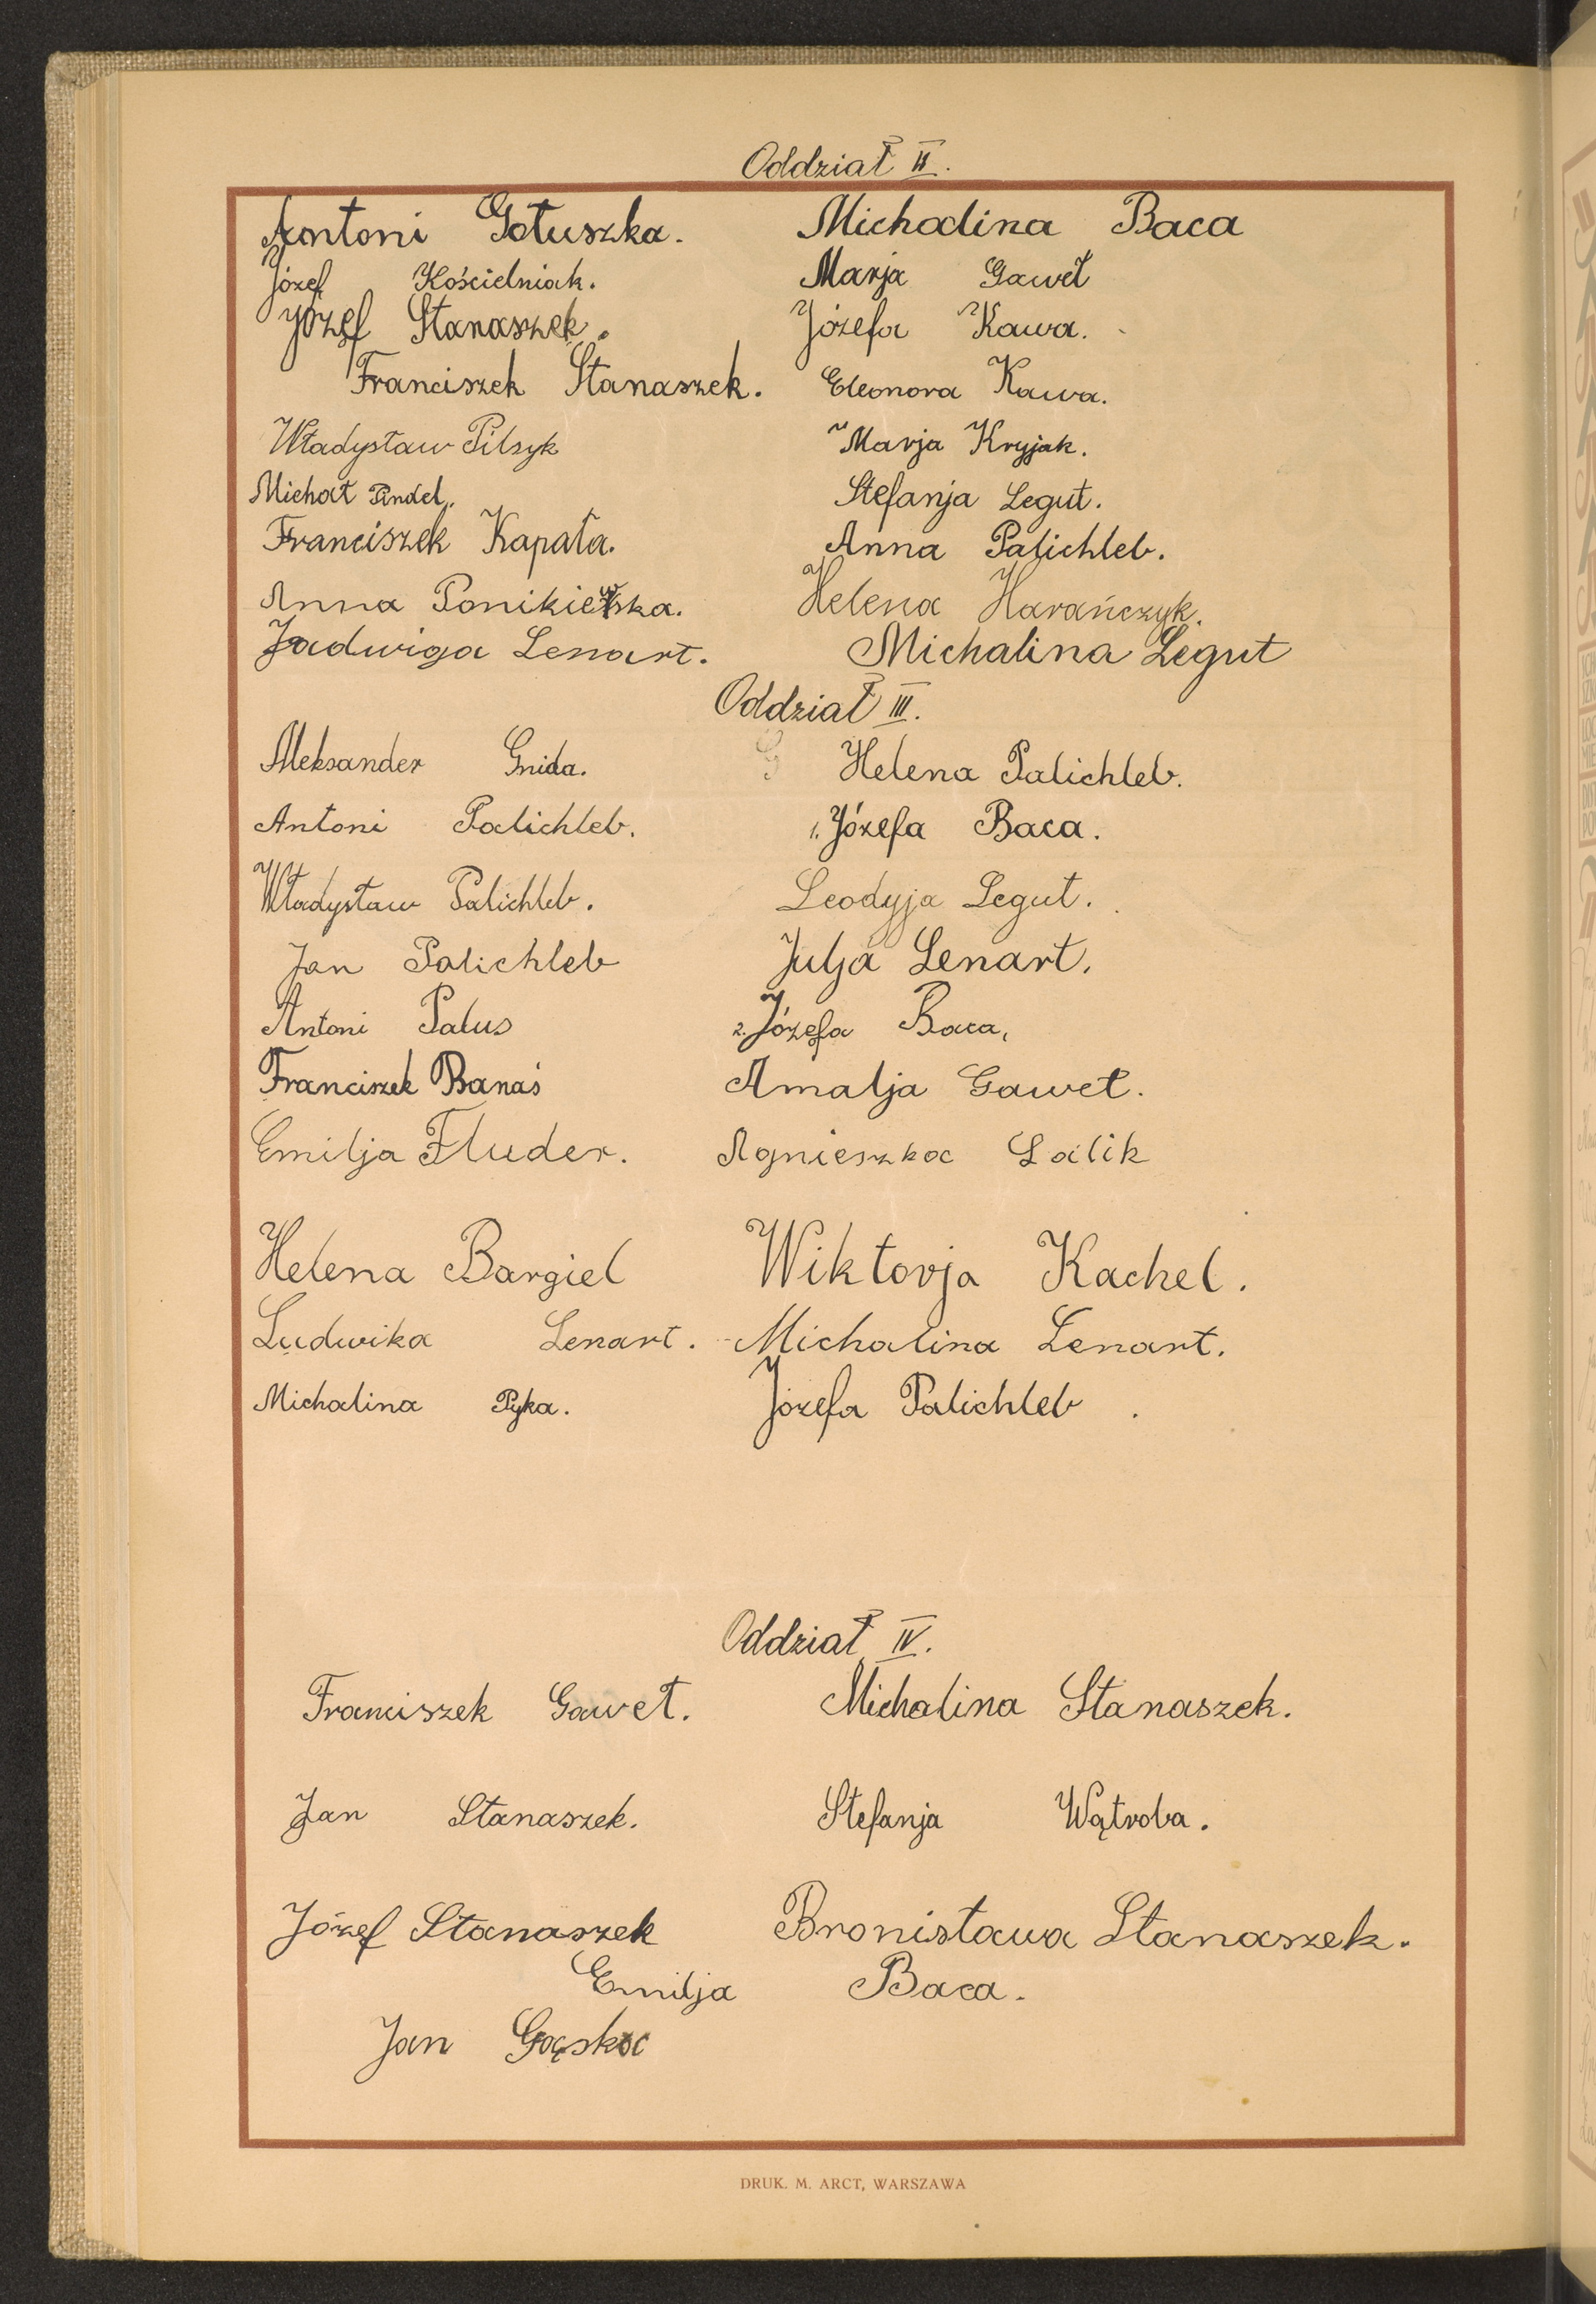 Oddział II.
Antoni Gołuszka. Michalina Baca
Józef Kościelniak. Marja Gaweł
Józef Stanaszek. Józefa Kawa.
Franciszek Stanaszek. Eleonora Kawa.
Władysław Pilszyk Marja Kryjak.
Michał Pindel. Stefanja Legut.
Franciszek Kapała. Anna Palichleb.
Anna Ponikiewska. Helena Harańczyk.
Jadwiga Lenart. Michalina Legut
Oddział III.
Aleksander Gnida. G Helena Palichleb.
Antoni Palichleb. 1. Józefa Baca.
Władysław Palichleb. Leodyja Legut.
Jan Palichleb Julja Lenart.
Antoni Palus 2. Józefa Baca,
Franciszek Banaś Amalja Gaweł.
Emilja Fluder. Agnieszka Lalik
Helena Bargiel Wiktorja Kachel.
Ludwika Lenart. Michalina Lenart.
Michalina Pyka. Józefa Palichleb.
Oddział IV.
Franciszek Gaweł. Michalina Stanaszek.
Jan Stanaszek. Stefanja Wątroba.
Józef Stanaszek Bronisława Stanaszek.
Emilja Baca.
Jan Gąska
DRUK. M. ARCT, WARSZAWA